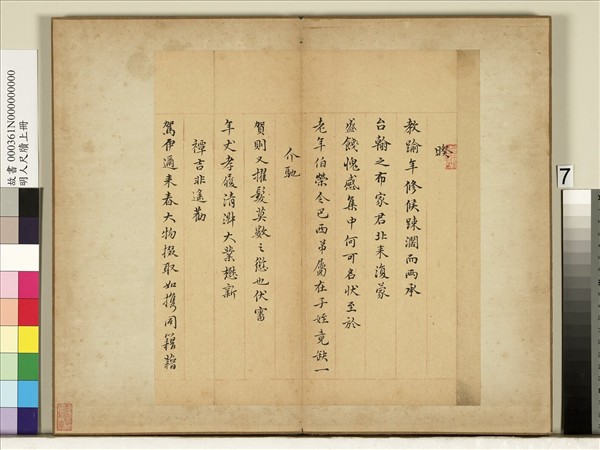 暌
教踰年修候踈濶而両承
台翰之布家君北来復蒙
盛餞愧感集中何可名状至於
老年伯榮令巴西弟屬在子姪竟缺一
介馳
賀則又擢髪莫數之愆也伏審
年丈孝履清
大業懋新
譚言非遠勸
駕伊邇来春大物掇取如携同籍藉
7
故書 000361N000000000
明人尺牘上冊